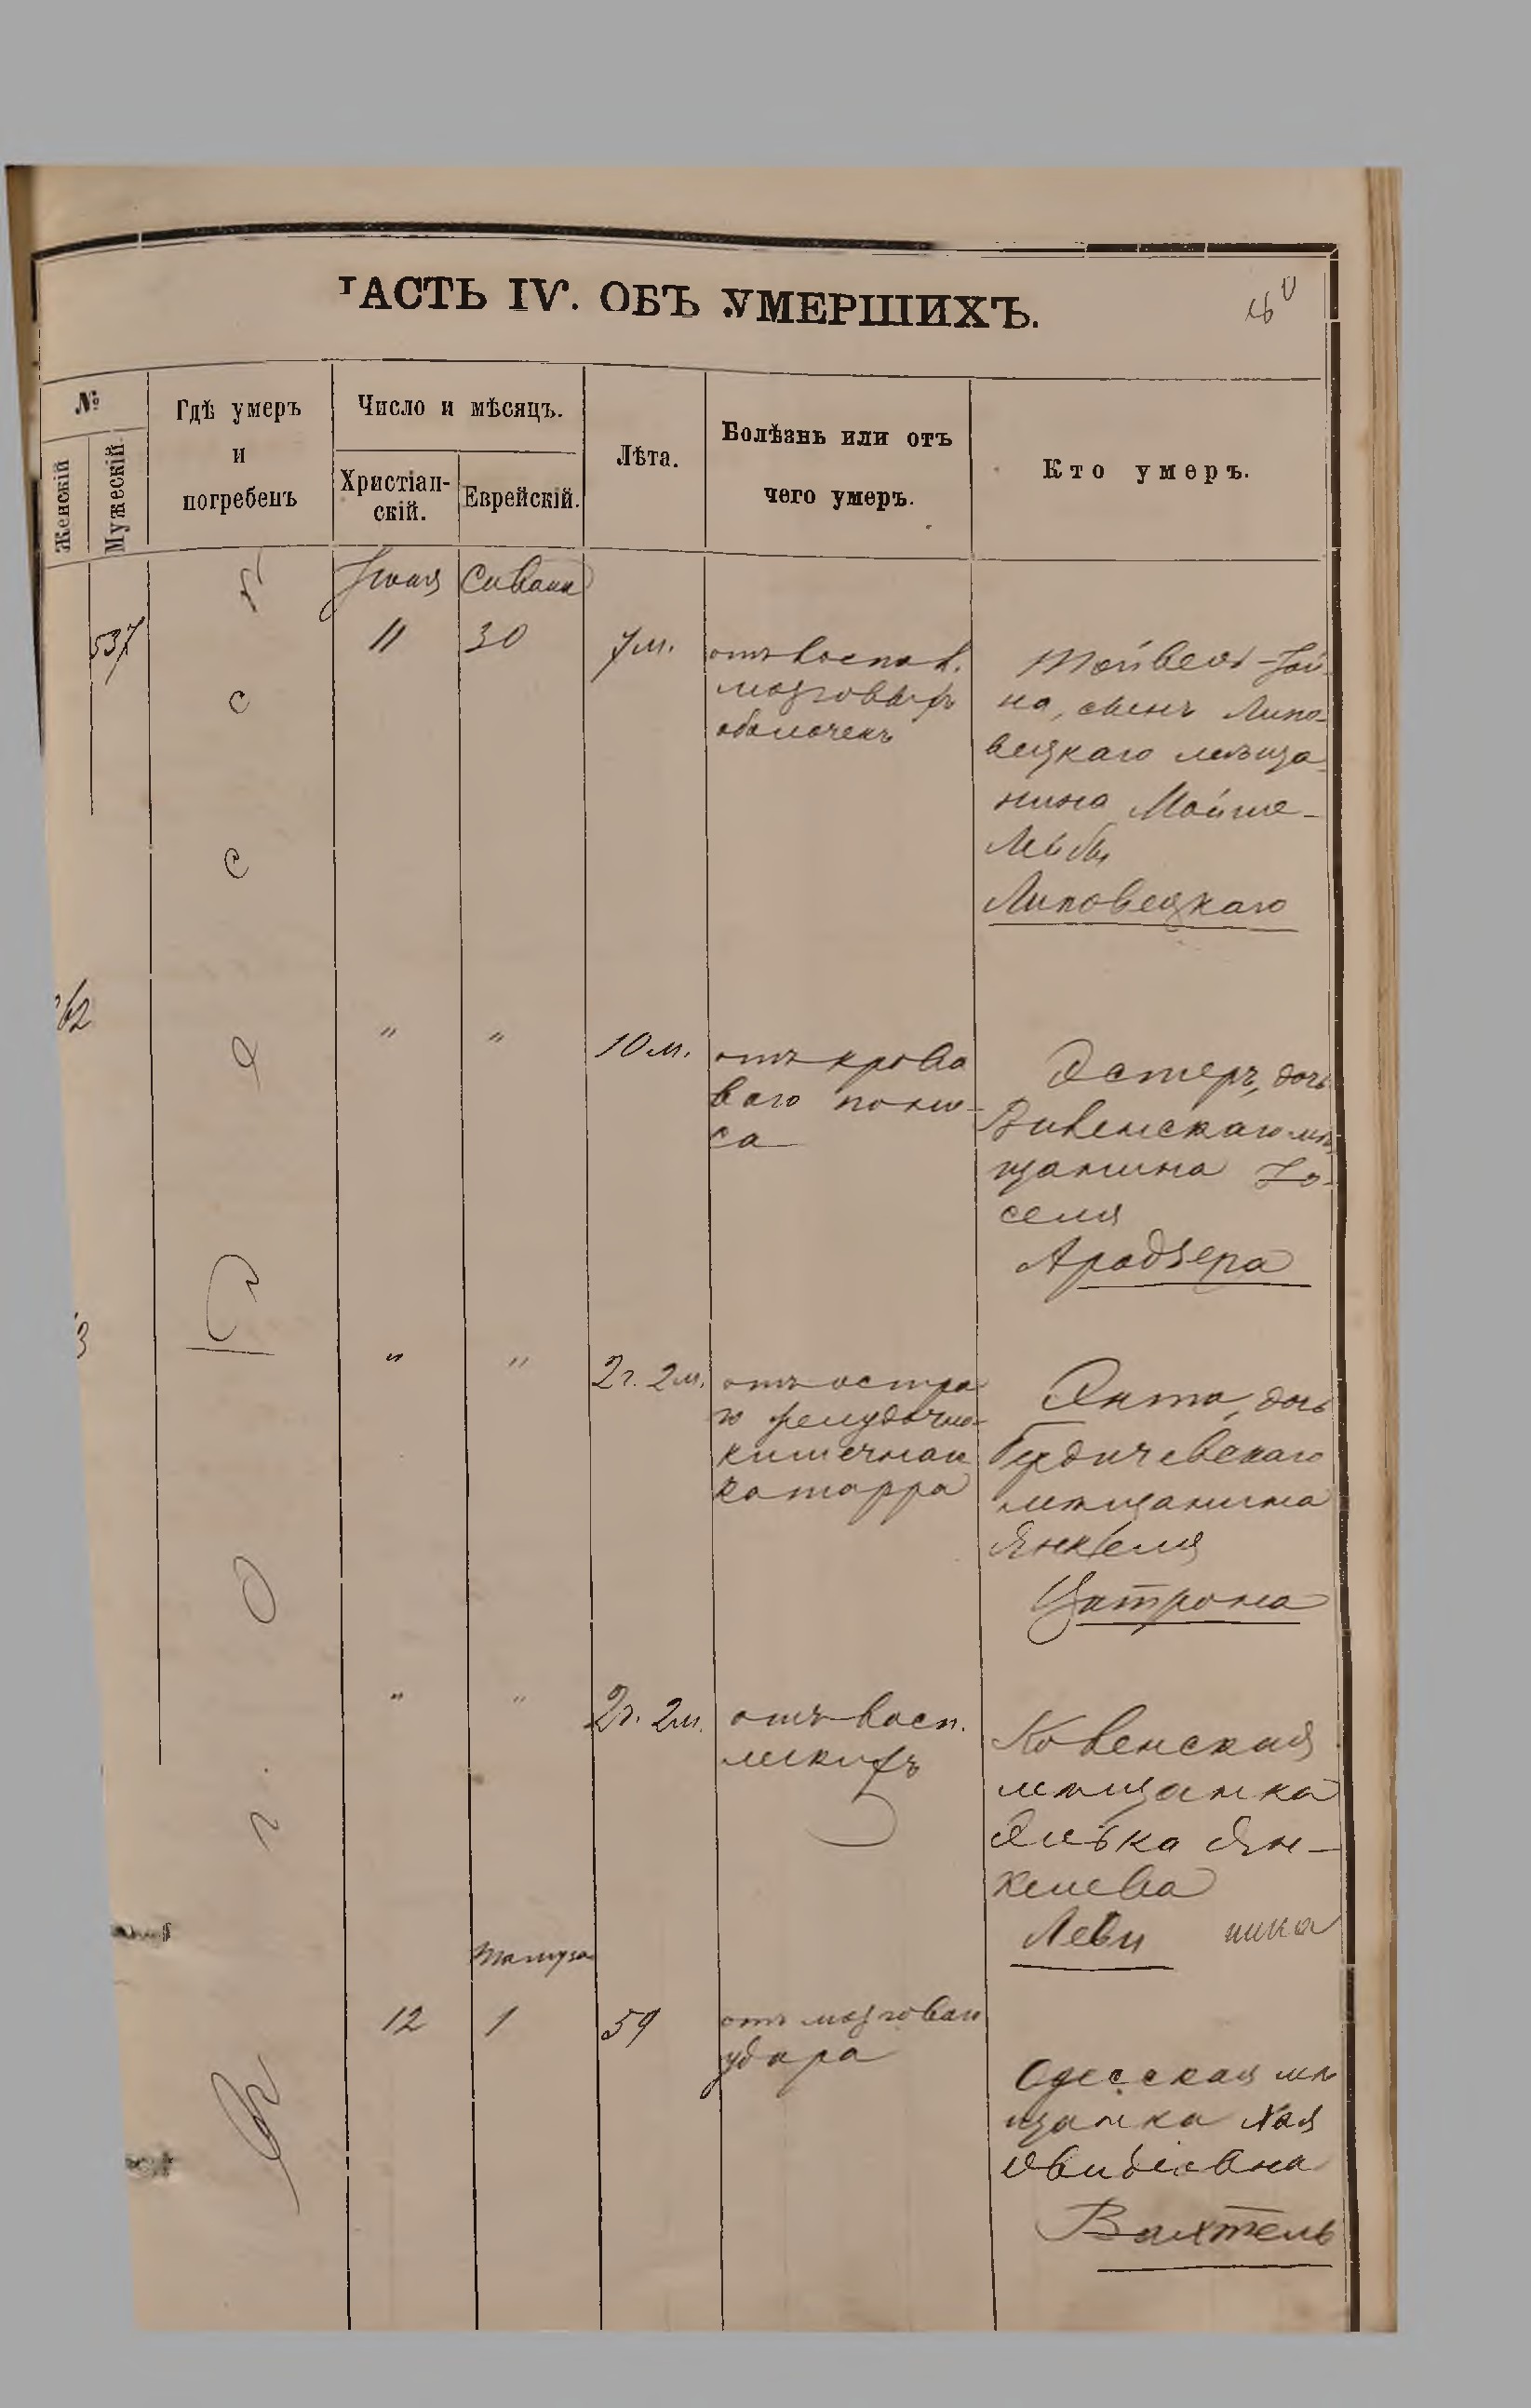 ЧАСТЬ IV. ОБЪ УМЕРШИХЪ.
№
Женскій
Мужескій
Гдѣ умеръ
и
погребенъ
Число и мѣсяцъ.
Христіан-
скій.
Еврейскій.
Лѣта.
Болѣзнь или отъ
чего умеръ.
Кто умеръ.
Іюня
Сивана
537
11
30
7 м.
отъ воспал.
мозговыхъ
оболочекъ
Тойвель-Хай-
на, сынъ Липо-
вецкаго мѣща-
нина Мойше-
Лейбы
Липовецкаго
62
"
"
10 м.
отъ крова
ваго поно-
са
Эстеръ, дочь
мѣ
щанина Іо-
селя
3
"
"
2 г. 2 м.
отъ остра
го желудочно-
кишечнаго
катарра
Энта, дочь
Бердичевскаго
мѣщанина
Янкеля
Цитрона
"
"
2 г. 2 м.
отъ восп.
легкихъ
Ковенская
мѣщанка
Элька Ян-
келева
Леви нина
Тамуза
12
1
59
отъ мозгового
удара
Одесская мѣ
щанка Хая
Вахтель
Въ г. Одессѣ